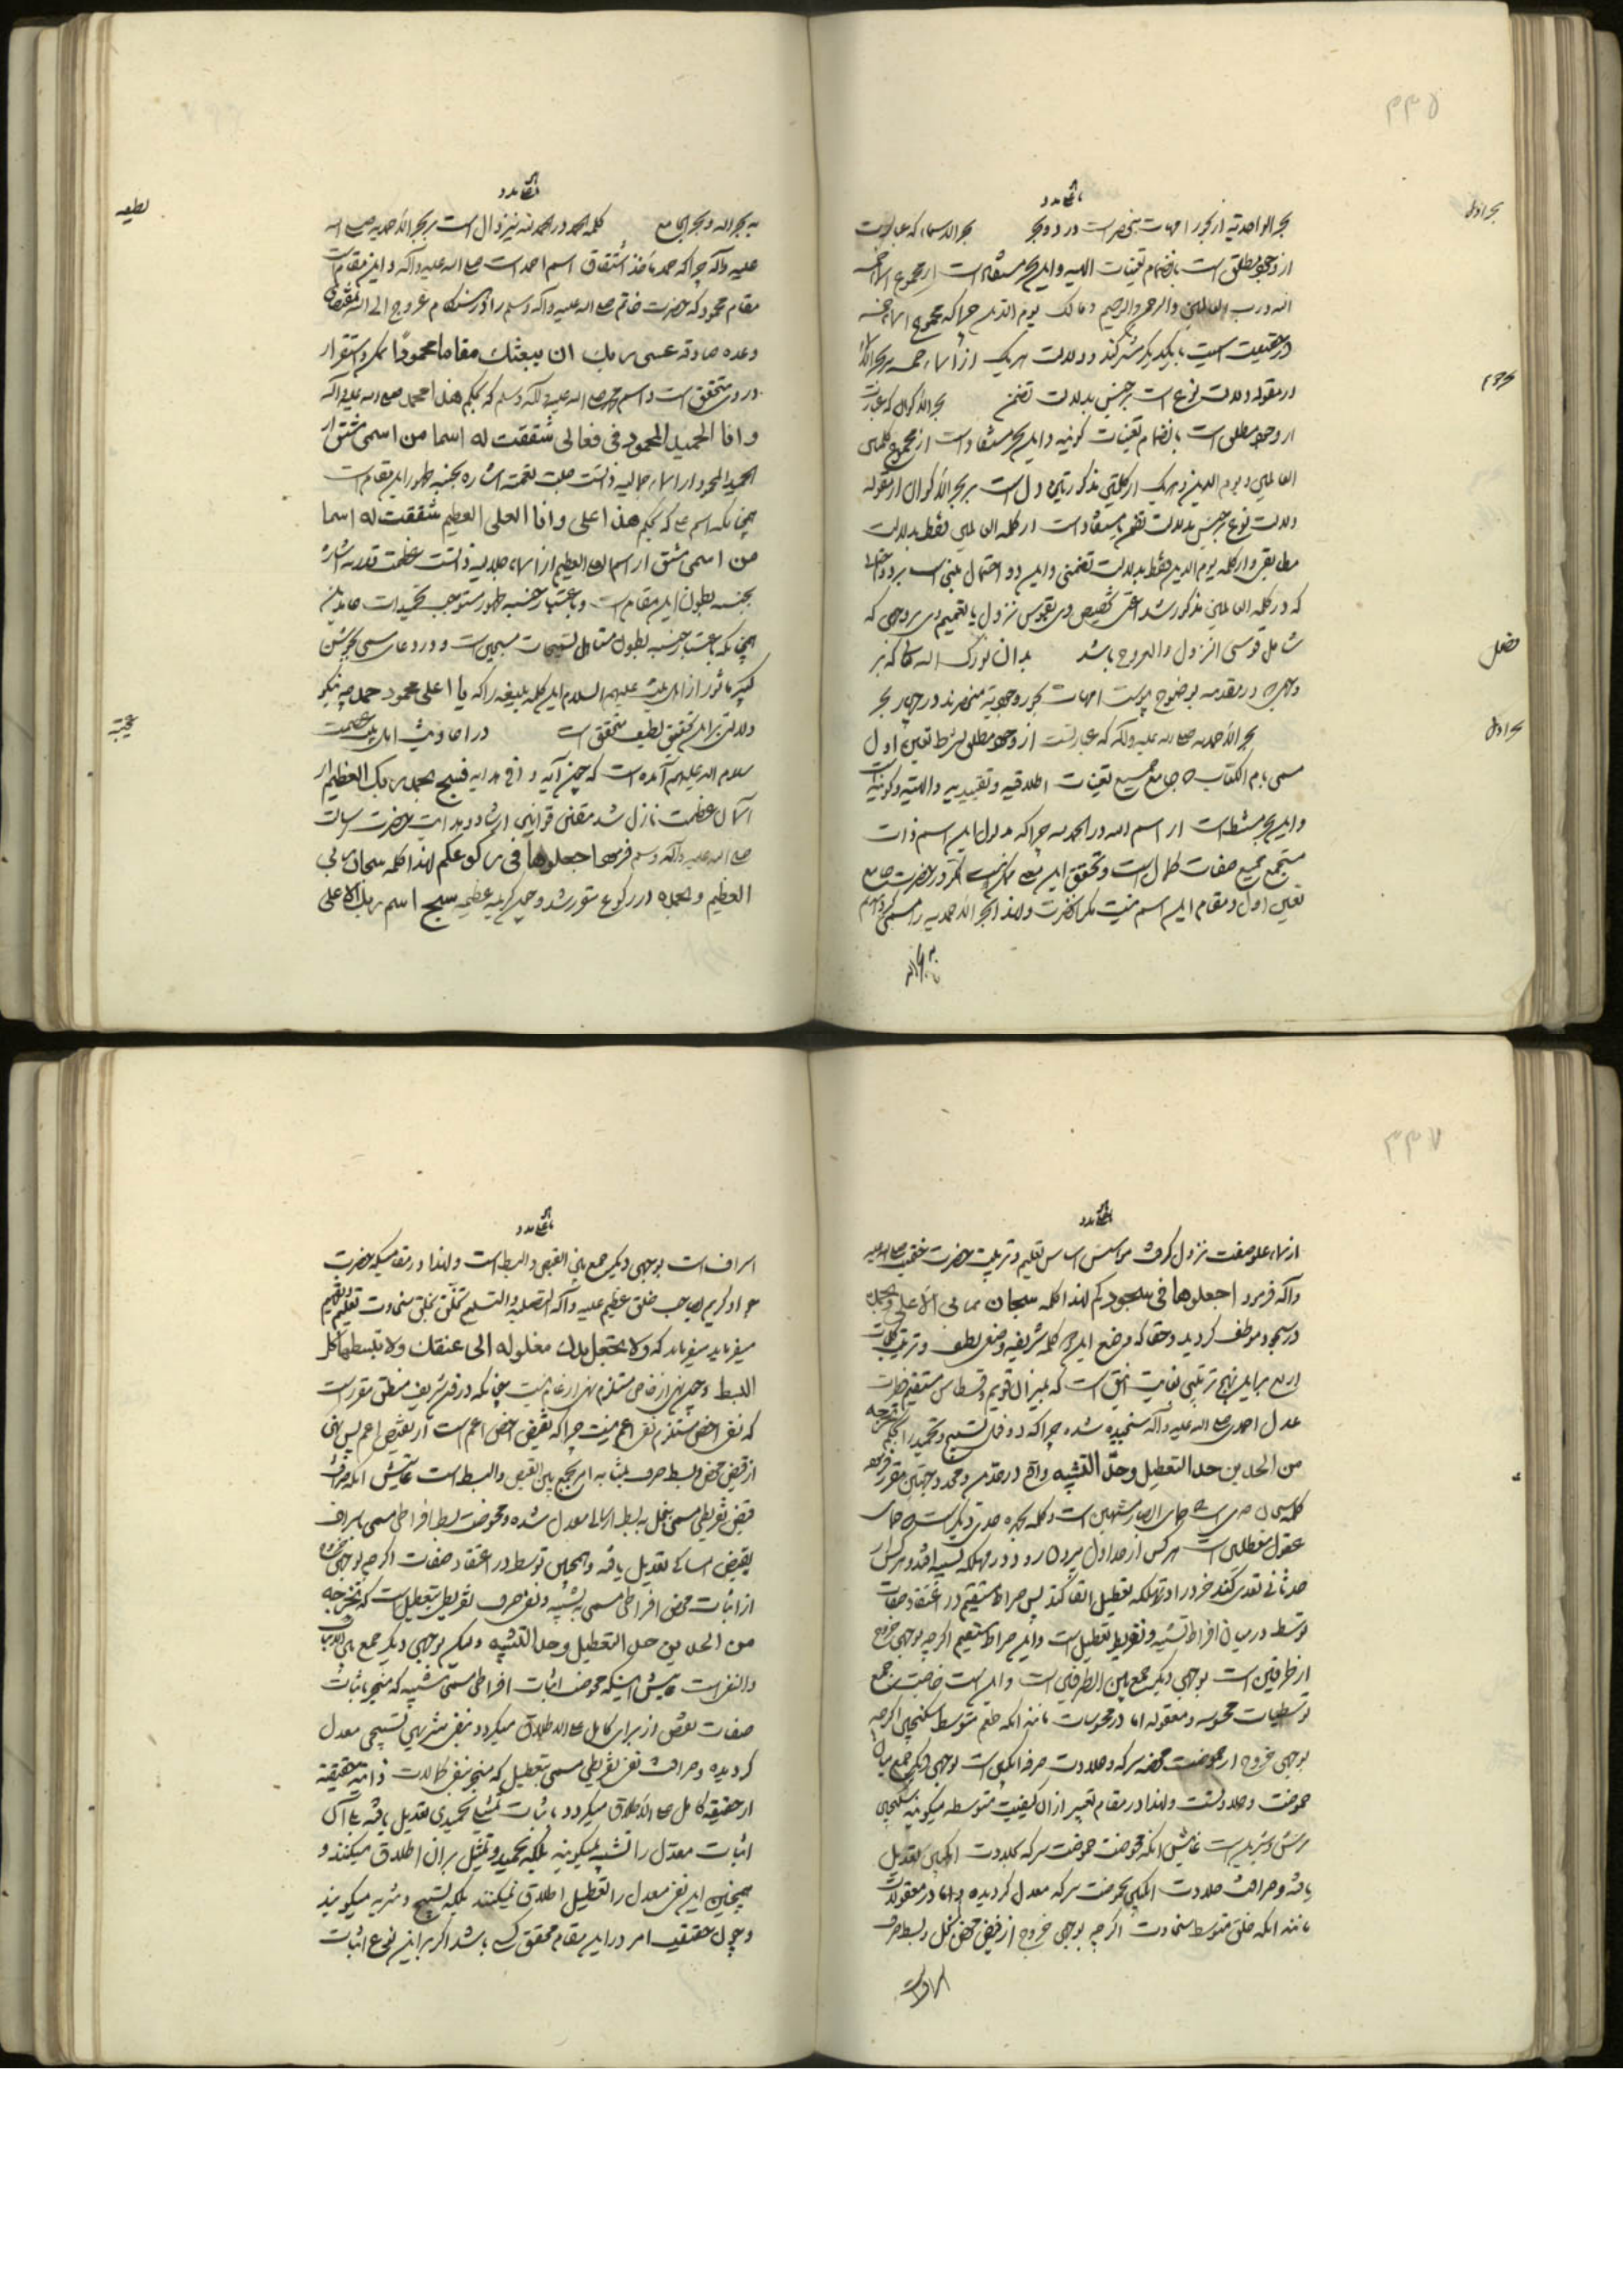 ۳۳۵
بحر اول
بحر الواحدیة از بحور امهات منحصر است در دو بحر بحر الاسماء که عبارتست
از وجود مطلق است بانضمام تعینات الهیه و این بحر مستفاد است از مجموع اسماء خمسه
الله و رب العالمین والرحمن والرحیم و مالک یوم الدین چراکه مجموع اسماء خمسه
در مقوله دلالت نوع است بر جنس بدلالت تضمن بحر الاکوان که عبارت
بحر دوم
از وجود مطلق است بانضمام تعینات کونیه و این بحر مستفاد است از مجموع کلمتین
العالمین و یوم الدین و هریک از کلمتین مذکورتین دال است بر بحر الاکوان از مقوله
دلالت نوع بر جنس بدلالت تضمن یا مستفاد است از کلمه العالمین فقط بدلالت
مطابقی و از کلمه یوم الدین فقط بدلالت تضمنی و این دو احتمال مبنی است بر دو احتمالی
که در کلمه العالمین مذکور شد اعنی تخصیص وی بقوس نزول یا تعمیم وی بر وجهی که
شامل قوسی النزول والعروج باشد بدان نورک الله تعالی که نیز
فصل
در مقدمه بوضوح پیوست امهات بحور وجوبیة منحصرند در چهار بحر
بحر اول
بحر الاحمدیه صلی الله علیه وآله که عبارتست از وجود مطلق بشرط تعین اول
مسمی بام الکتاب جامع جمیع تعینات اطلاقیه و تقییدیه والهیه و کونیه است
و این بحر مستنبط است از اسم الله در الحمد لله چراکه مدلول این اسم ذات
مستجمع جمیع صفات کمال است و تحقق این معنی ممکن نیست مگر در حضرت جامع
تعین اول و مقام این اسم نیست مگر آنحضرت و لهذا بحر الاحمدیه را مسمی کردیم
به بحر الله و بحر الجامع کلمه الحمد در الحمد لله نیز دال است بر بحر الاحمدیه صلی الله
لطیفه
علیه وآله چراکه حمد مأخذ اشتقاق اسم احمد است صلی الله علیه وآله و این مقام است
مقام محمود که حضرت خاتم صلی الله علیه وآله وسلم را در هنگام عروج الی الله بمقتضای
وعده صادقه عسی ربک ان یبعثک مقاما محمودا تمکن و استقرار
در وی متحقق است و اسم محمد صلی الله علیه وآله وسلم که بحکم هذا محمد صلی الله علیه وآله
وانا الحمید المحمود فی فعالی شققت له اسما من اسمی مشتق از
الحمید المحمود از اسماء جمالیه ذاتست جلت نعمته اشاره بجنبه ظهور این مقام است
همچنانکه اسم علی که بحکم هذا علی وانا العلی العظیم شققت له اسما
من اسمی مشتق از اسم العلی العظیم از اسماء جلالیه ذاتست عظمت قدرته اشاره
بجنبه بطون این مقام است و باعتبار جنبه ظهور مستوجب تحمیدات حامدین
همچنانکه باعتبار جنبه بطون متقابل تسبیحات مسبحین است و ورود دعاء مسمی بجوشن
کبیر مأثور از اهل بیت علیهم السلام این کلمه بلیغه را که یا اعلی محمود حمد چه نیکو
دلالتی بر این تحقیق لطیف متحقق است در احادیث اهل بیت عصمت
عجیبه
سلام الله علیهم آمده است که چون آیه وافی هدایه فسبح بحمد ربک العظیم از
آسمان عظمت نازل شد مقنن قوانین ارشاد و هدایت حضرت رسالت
صلی الله علیه وآله وسلم فرمود اجعلوها فی رکوعکم لهذا کلمه سبحان ربی
العظیم وبحمده در رکوع مقرر شد و چون کریمه عظیمه سبح اسم ربک الاعلی
۳۳۷
از سماء علو صفت نزول گرفت مؤسس اساس تعلیم و تربیت حضرت ختمیت صلی الله علیه
وآله فرمود اجعلوها فی سجودکم لهذا کلمه سبحان ربی الاعلی وبحمده
در سجود موظف گردید و حقا که وضع این کلمه شریفه وضعی لطیف و ترتیب کلمات
اربع بر این نهج ترتیبی بغایت انیق است که بمیزان قویم و قسطاس مستقیم حضرت
عدل احمدی صلی الله علیه وآله سنجیده شده چراکه دو فصل تسبیح و تحمید را بحکم تخرجه
من الحدین حد التعطیل وحد التشبیه واقع در عدمین و محدود بجهتین مقرر فرموده
کلمه سبحان حدی است جمال ابصار مشبهین است و کلمه بحمده حدی دیگر است جمال
عقول معطلین است هر کس از حد اول بیرون رود در مهلکه تشبیه افتد و هر کس از
حد ثانی تعدی کند خود را در تهلکه تعطیل القا کند پس صراط مستقیم در اعتقاد صفات
توسط در میان افراط تشبیه و تفریط تعطیل است و این صراط مستقیم اگرچه بوجهی خروج
از طرفین است بوجهی دیگر جمع بین الطرفین است و این است خاصیت جمیع
توسطیات محسوسه و معقوله اما در محسوسات مانند آنکه طعم متوسط سکنجبین اگرچه
بوجهی خروج از حموضت محضه سرکه و حلاوت صرفه انگبین است بوجهی دیگر جمع میان
حموضت و حلاوتست و لهذا در مقام تعبیر از آن کیفیت متوسطه میگویند سکنجبین
ترش و شیرین است غایتش آنکه محوضت حموضت سرکه بحلاوت انگبین تعدیل
یافته و صرافت حلاوت انگبین بحموضت سرکه معدل گردیده و اما در معقولات
مانند آنکه خلق متوسط سخاوت اگرچه بوجهی خروج از قبض محض بخل و بسط صرف
اسراف است بوجهی دیگر جمع بین القبض والبسط است و لهذا در مقامیکه حضرت
جواد کریم صاحب خلق عظیم علیه وآله التصلیة والتسلیم تخلق بخلق سخاوت تعلیم و تفهیم
میفرماید میفرماید که ولا تجعل یدک مغلولة الی عنقک ولا تبسطها کل
البسط و چون نهی از خاص مستلزم نهی از عام نیست چنانکه در فن شریف منطق مقرر است
که نفی اخص مستلزم نفی اعم نیست چراکه نقیض اخص اعم است از نقیض اعم پس نهی
از قبض محض و بسط صرف بمثابه امر بجمع بین القبض والبسط است غایتش آنکه صرافت
قبض تفریطی مسمی ببخل به بسط ارسالی معدل شده و محوضت بسط افراطی مسمی باسراف
بقبض امساکی تعدیل یافته و همچنین توسط در اعتقاد صفات اگرچه بوجهی خروج
از اثبات محض افراطی مسمی به تشبیه و نفی صرف تفریطی بتعطیل است که تخرجه
من الحدین حد التعطیل وحد التشبیه ولیکن بوجهی دیگر جمع بین الاثبات
والنفی است غایتش اینکه محوضت اثبات افراطی مسمی بتشبیه که منجر باثبات
صفات نقص از برای کامل علی الاطلاق میگردد بنفی تنزیهی تسبیحی معدل
گردیده و صرافت نفی تفریطی مسمی بتعطیل که منجر بنفی کمالات ذاتیه حقیقیه
از حقیقة کامل علی الاطلاق میگردد باثبات تمثیلی تحمیدی تعدیل یافته است آن
اثبات معدل را تشبیه نمیگویند بلکه تحمید و تمثیل بر آن اطلاق میکنند و
همچنین این نفی معدل را تعطیل اطلاق نمیکنند بلکه تسبیح و تنزیه میگویند
و چون حقیقت امر در این مقام محقق باشد اگر بر این نوع اثبات